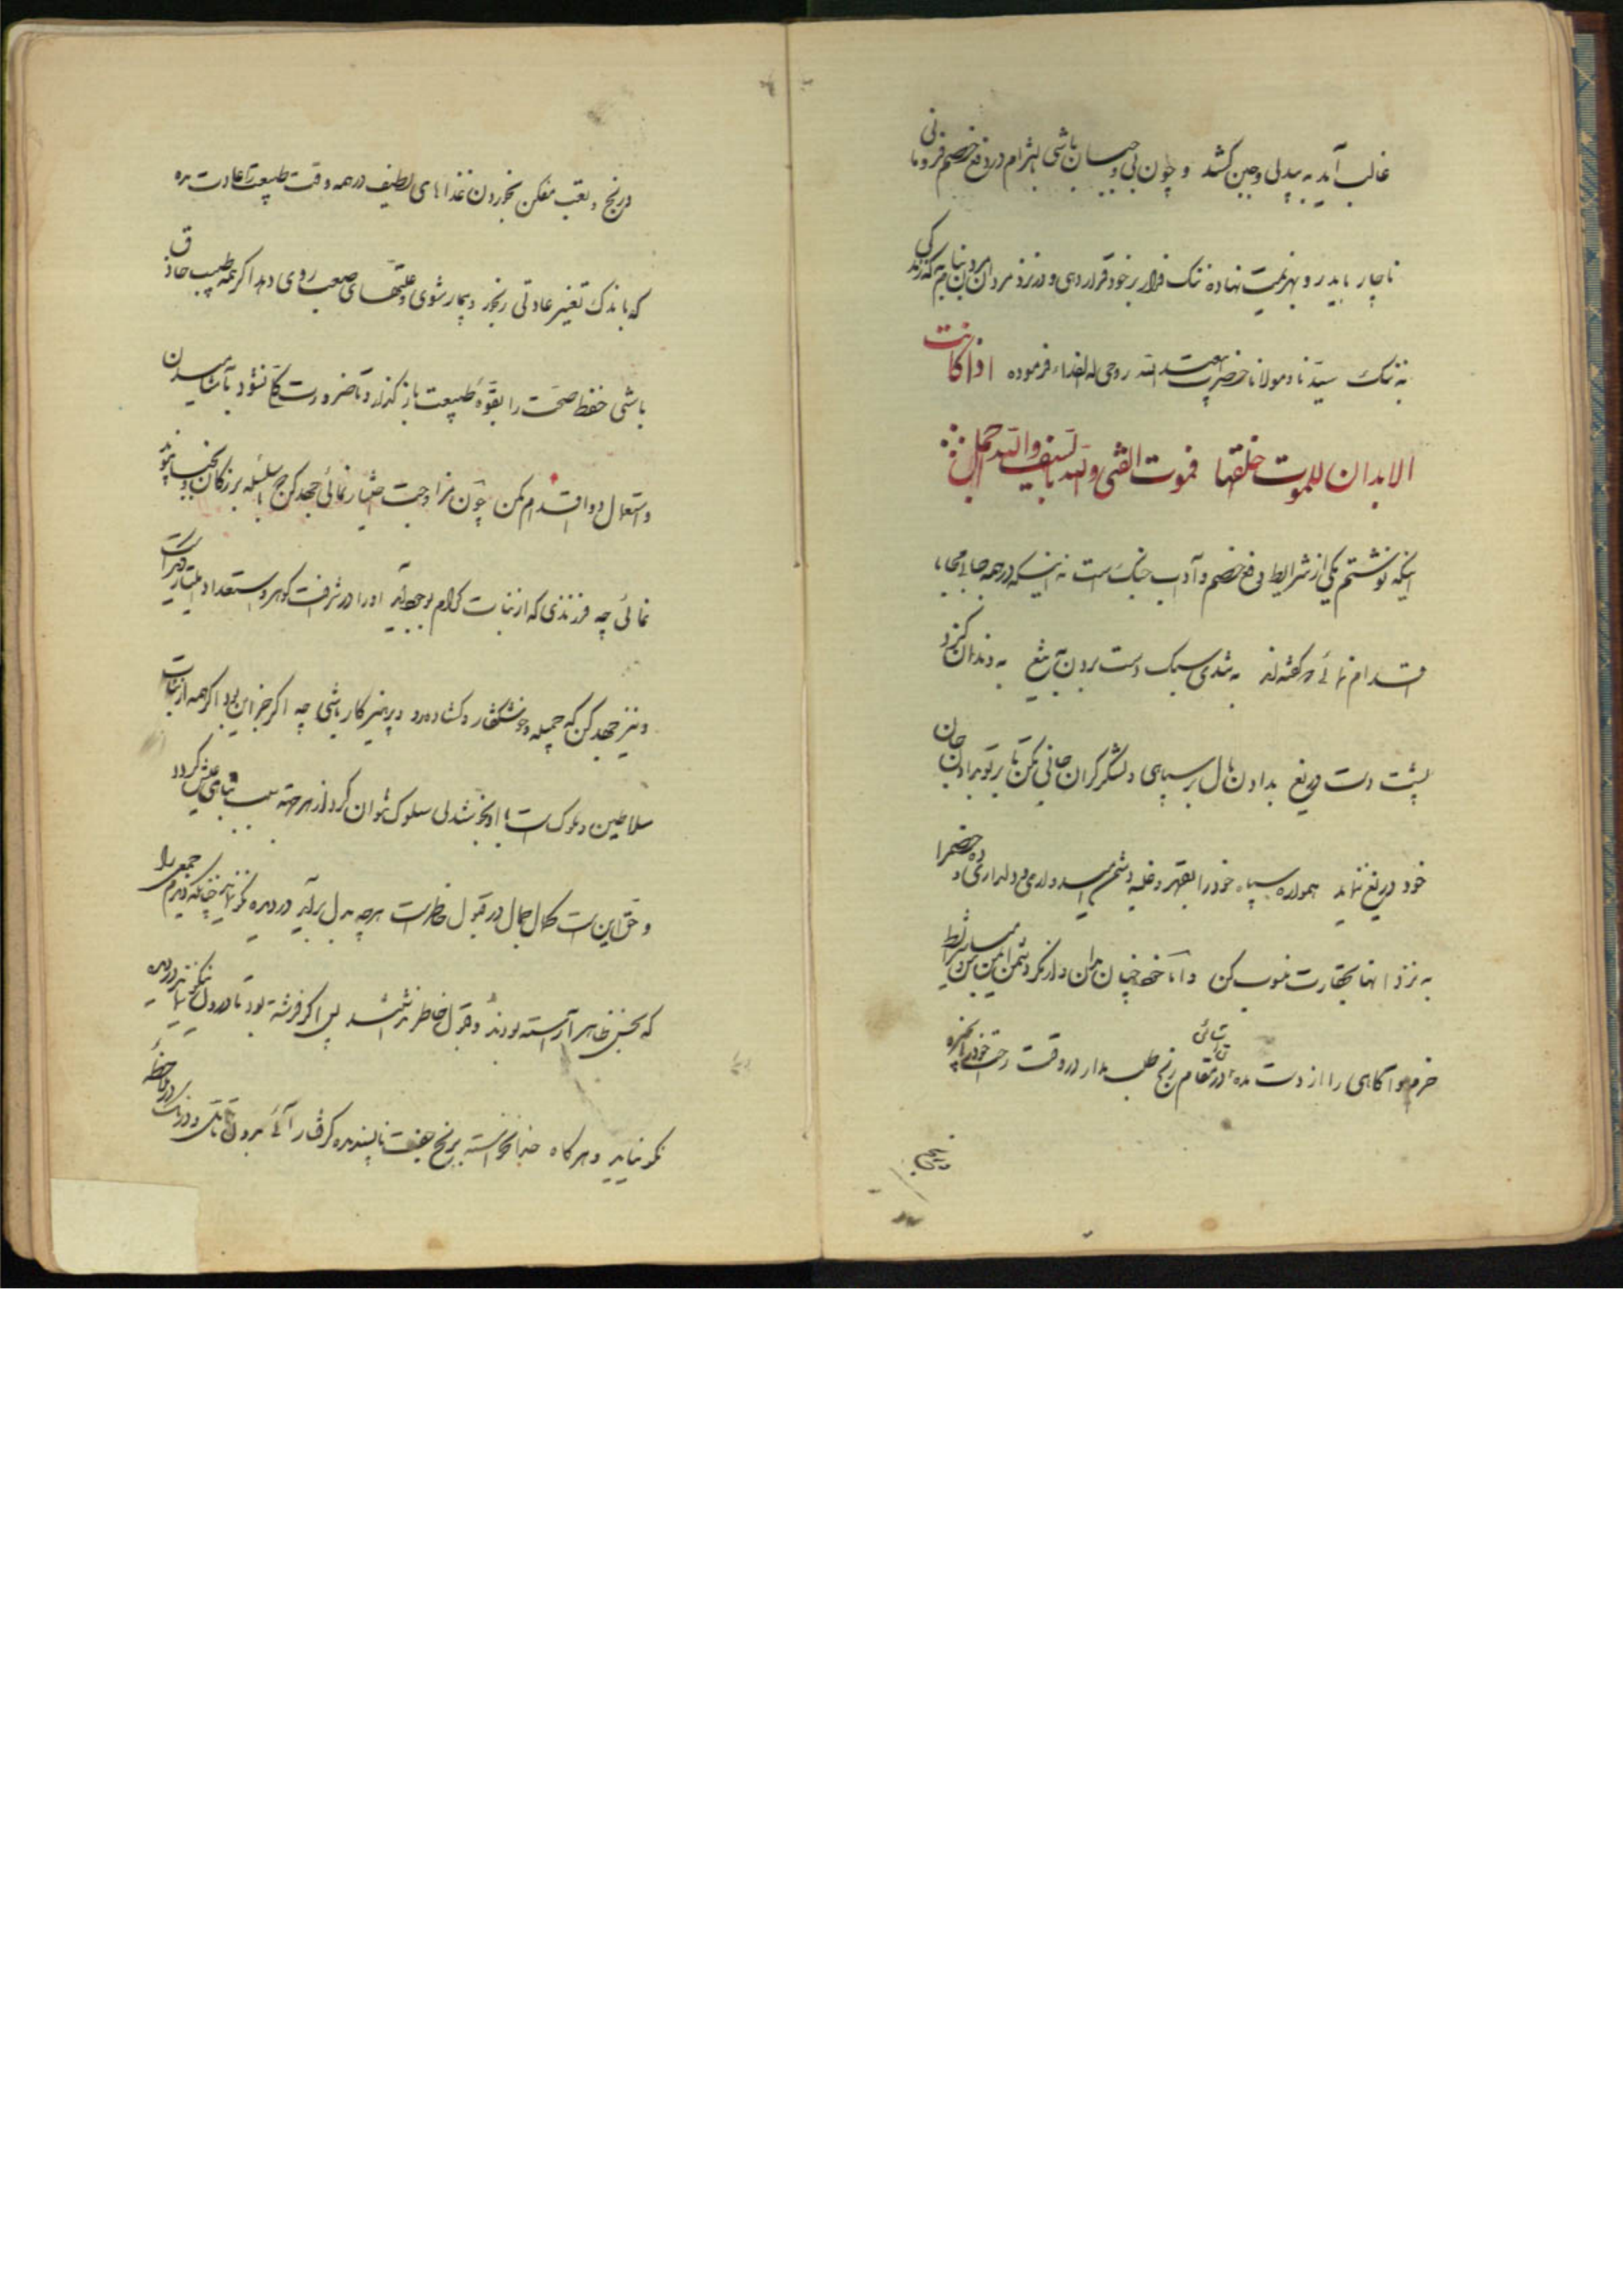 غالب آید به بیدلی و جبن کشد و چون بی جبن باشی بالتزام در دفع خصم فرو مانی
ناچار باید رو بهزیمت نهاده ننک فرار بر خود قرار دهی و در نزد مردان مردن به که زندکی
به ننک سیدنا و مولانا حضرت روحی له الفداء فرموده اذا کانت
الابدان للموت خلقها فموت الفتی والله بالسیف والله اجمل
اینکه نوشتم یکی از شرایط دفع خصم و آداب جنک است نه اینکه در همه جا بی محابا
اقدام نمائی که کفته‌اند به تندی سبک دست بردن به تیغ به دندان کزد
پشت دست دریغ بدادن مال بر سپاهی و لشکر کران جانی مکن تا بر تو بدادن جان
خود دریغ ننماید همواره سپاه خود را بقهر و غلبه دشمن امیدواری و دلداری ده و خصم را
به نزد انها بحقارت منسوب کن و اما خود چنان مدان و از مکر دشمن ایمن مباش شرایط
حزم و آکاهی را از دست مده در مقام رنج طلب مدار در وقت راحت خود را
درنج و تعب مفکن بخوردن غذاهای لطیف در همه وقت طبیعت را عادت مده
که باندک تغییر عادتی رنجور و بیمار شوی و علتهای صعب روی دهد اکر همه طبیب حاذق
باشی حفظ صحت را بقوه طبیعت باز کذار و تا ضرورت کلی نشود بآشامیدن
و استعمال دوا اقدام مکن چون مزاوجت اختیار نمائی جهد کن که با سلسله بزرکان و نجبا پیوند
نمائی چه فرزندی که از بنات کرام بوجود آید او را در شرافت کوهر و استعداد امتیاز دیکر است
و نیز جهد کن که جمیله و خوشکفتار و کشاده‌رو و پرهیزکار باشی چه اکر جز این بود اکر همه از بنات
سلاطین و ملوک است با او بخوشدلی سلوک نتوان کرد و از هر جهة سبب تباهی عیش کردد
و حق این است کمال جمال در قبول خاطر است هرچه بدل برآید در دیده نکو نماید چنانکه دیدم جمعی را
که بحسن ظاهر آراسته بودند و قبول خاطر نداشتند پس اکر فرشته بود تا در دل نکو نیاید در دیده
نکو ننماید و هر کاه خدا نخواسته برنج جفت ناپسندیده کرفتار آئی بدون تامل و درنک